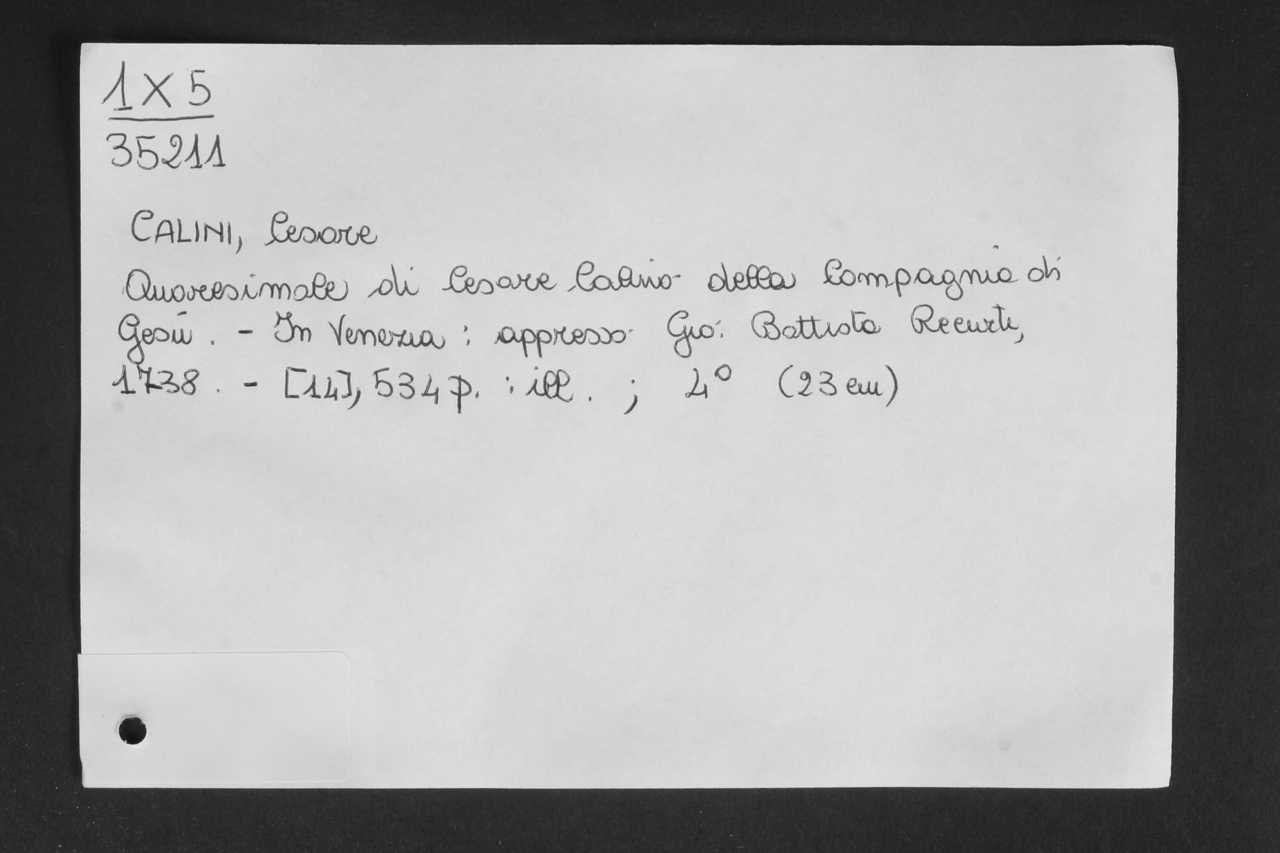 1 X 5
35211
CALINI, Cesare
Quaresimale di Cesare Calino della Compagnia di
Gesù. - In Venezia : appresso Gio: Battista Recurti,
1738. - [14], 534 p. : ill. ; 4° (23 cm)